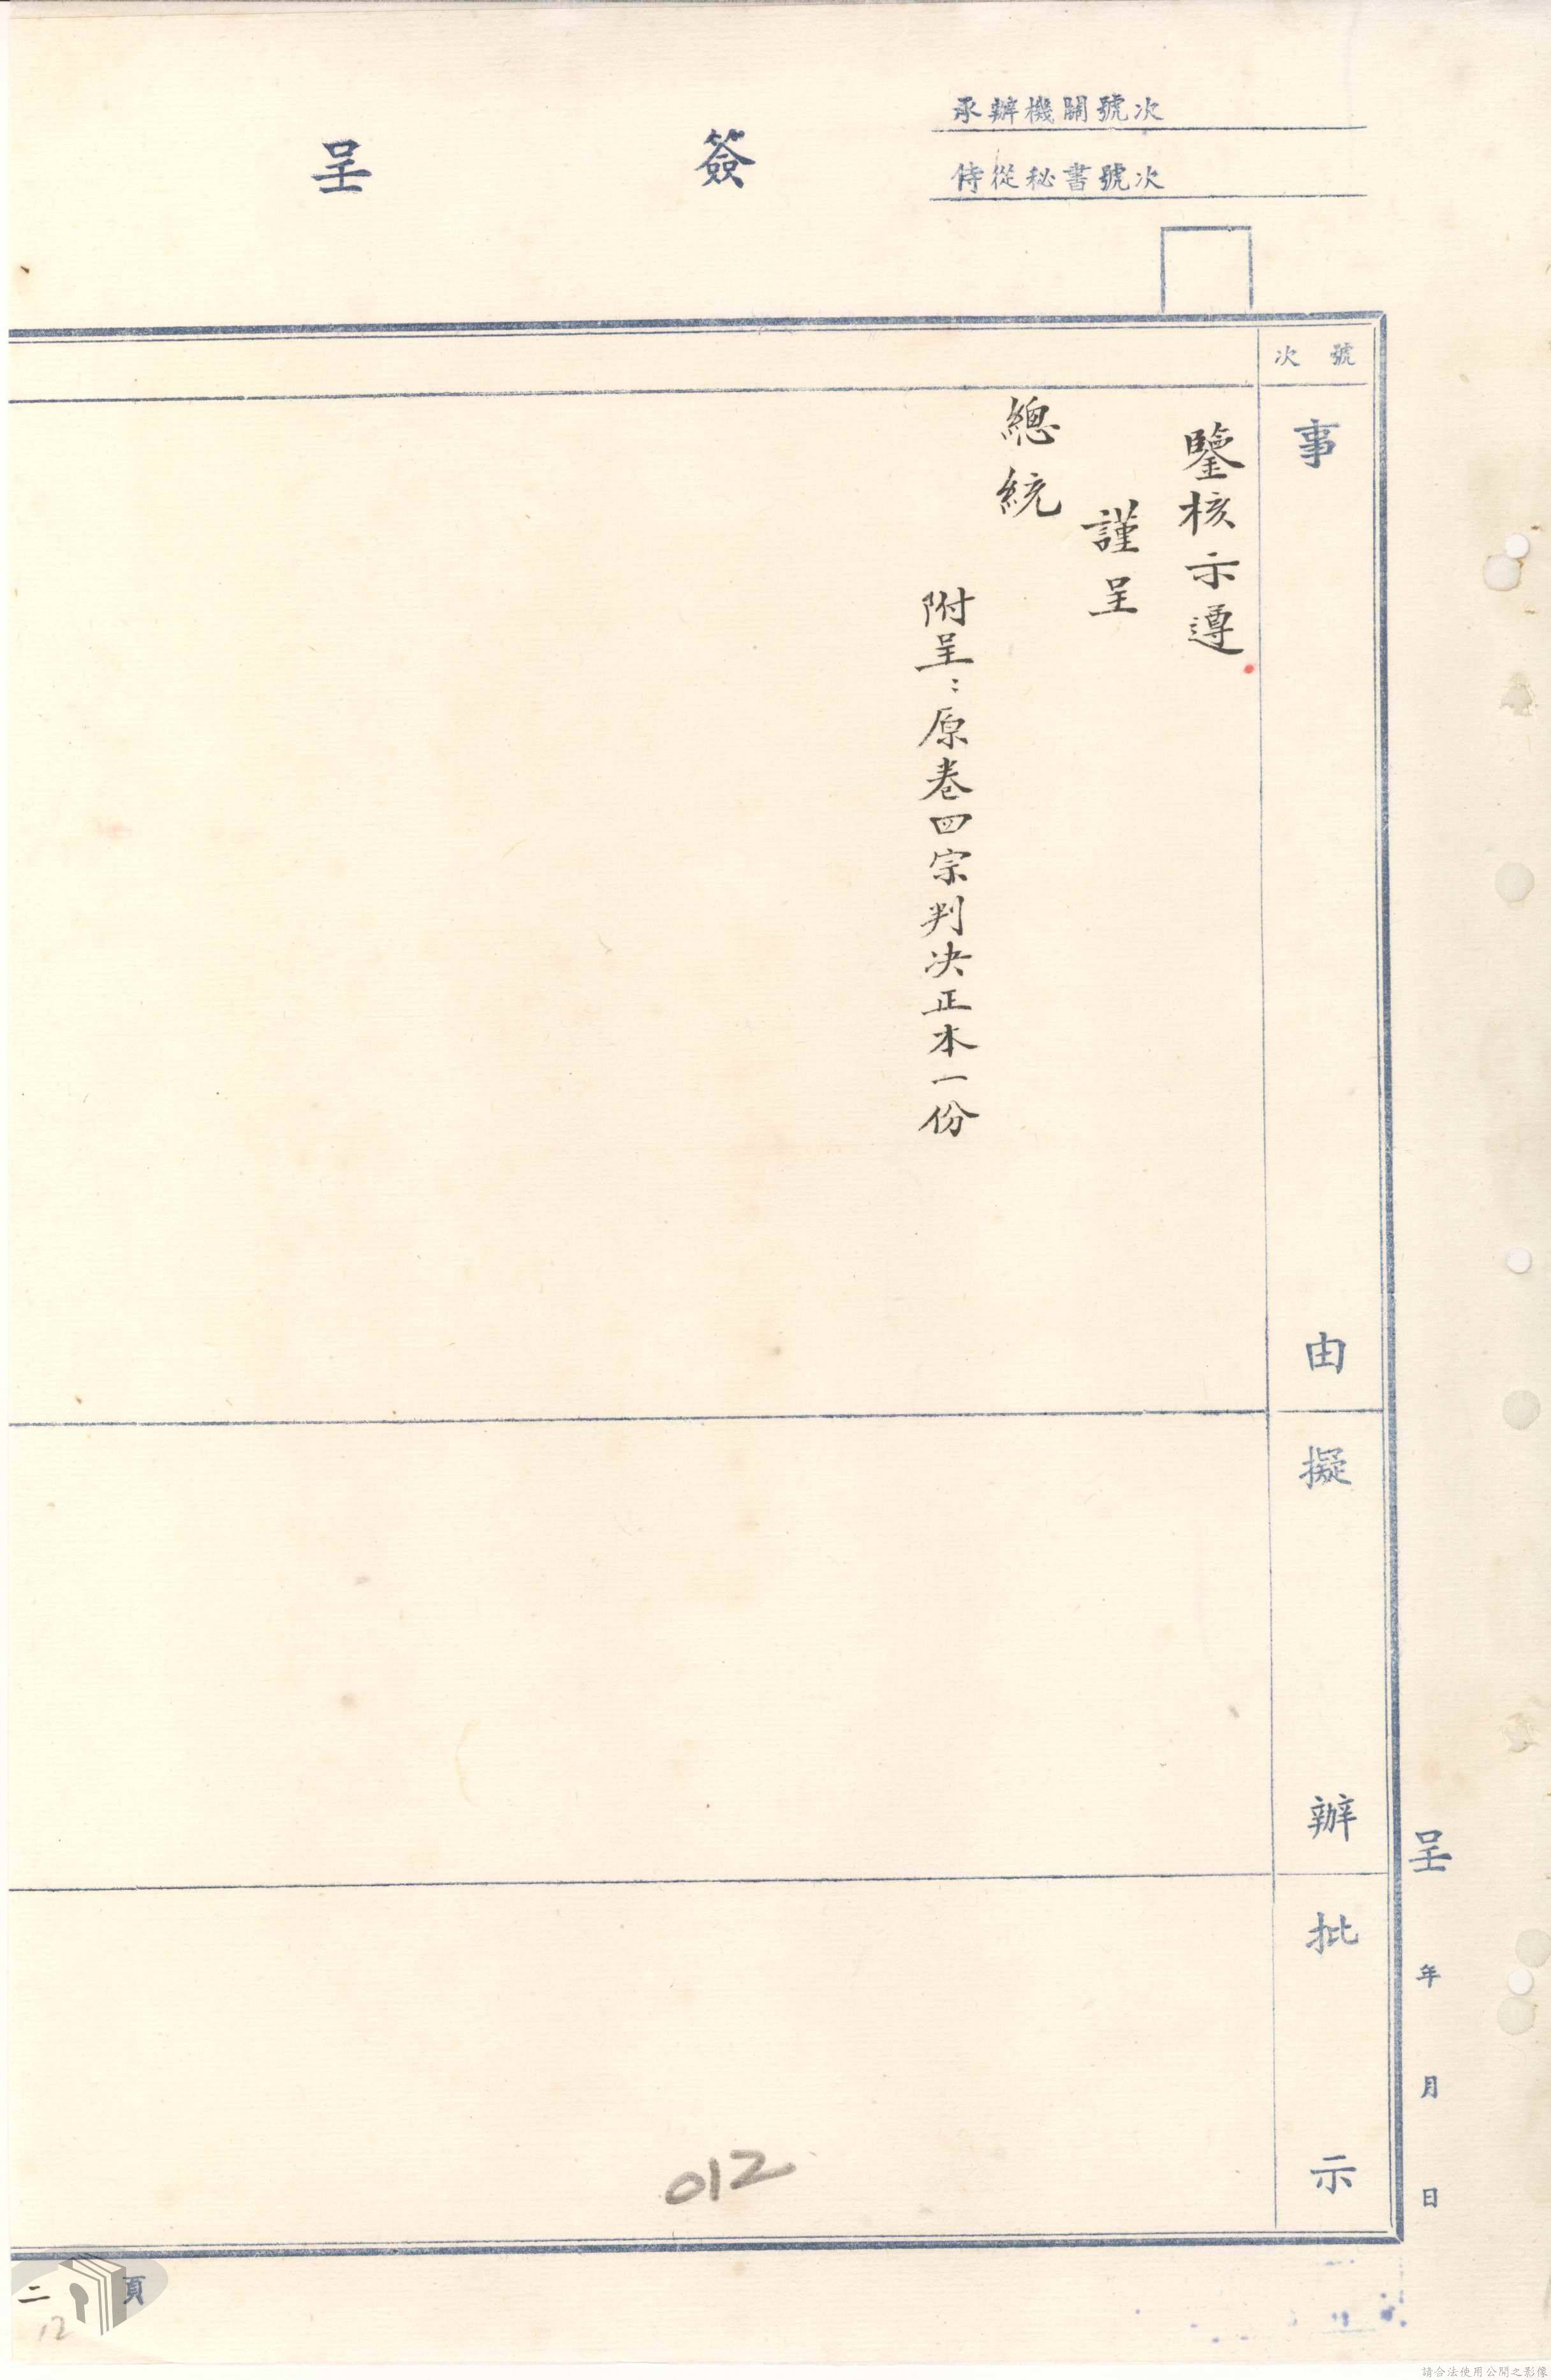 承辦機關號次
侍從秘書號次
簽呈
號次
事由
擬辦
批示
鑒核示遵
謹呈
總統
附呈：原卷四宗判决正本一份
呈 年 月 日
012
二頁
12
請合法使用公開之影像